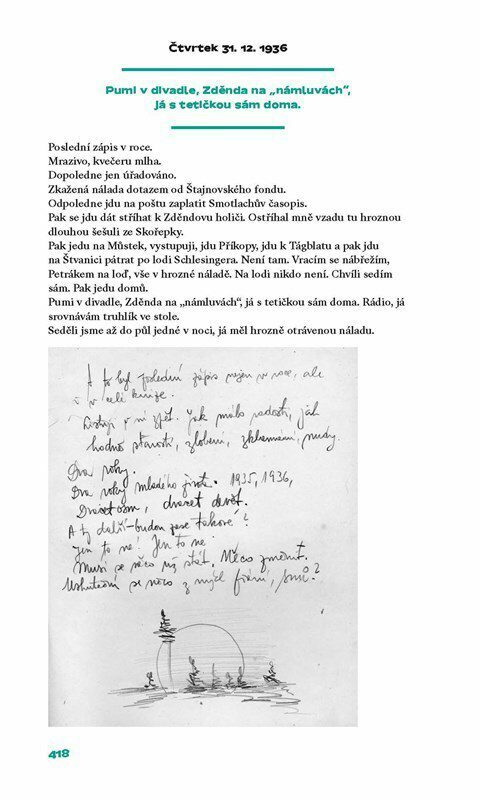 Čtvrtek 31. 12. 1936
Pumi v divadle, Zděnda na „námluvách“,
já s tetičkou sám doma.
Poslední zápis v roce.
Mrazivo, kvečeru mlha.
Dopoledne jen úřadováno.
Zkažená nálada dotazem od Štajnovského fondu.
Odpoledne jdu na poštu zaplatit Smotlachův časopis.
Pak se jdu dát stříhat k Zděndovu holiči. Ostříhal mně vzadu tu hroznou
dlouhou šešuli ze Skořepky.
Pak jedu na Můstek, vystupuji, jdu Příkopy, jdu k Tágblatu a pak jdu
na Štvanici pátrat po lodi Schlesingera. Není tam. Vracím se nábřežím,
Petrákem na loď, vše v hrozné náladě. Na lodi nikdo není. Chvíli sedím
sám. Pak jedu domů.
Pumi v divadle, Zděnda na „námluvách“, já s tetičkou sám doma. Rádio, já
srovnávám truhlík ve stole.
Seděli jsme až do půl jedné v noci, já měl hrozně otrávenou náladu.
A to byl poslední zápis nejen v roce, ale
i v celé knize.
Listuji v ní zpět. Jak málo radosti, jak
hodně starostí, zlobení, zklamání, nudy.
Dva roky.
Dva roky mladého života. 1935, 1936,
Dvacet osm, dvacet devět.
A ty další – budou zase takové?
Jen to ne! Jen to ne.
Musí se něco už stát. Něco změnit.
Uskuteční se něco z mých přání, snů?
418